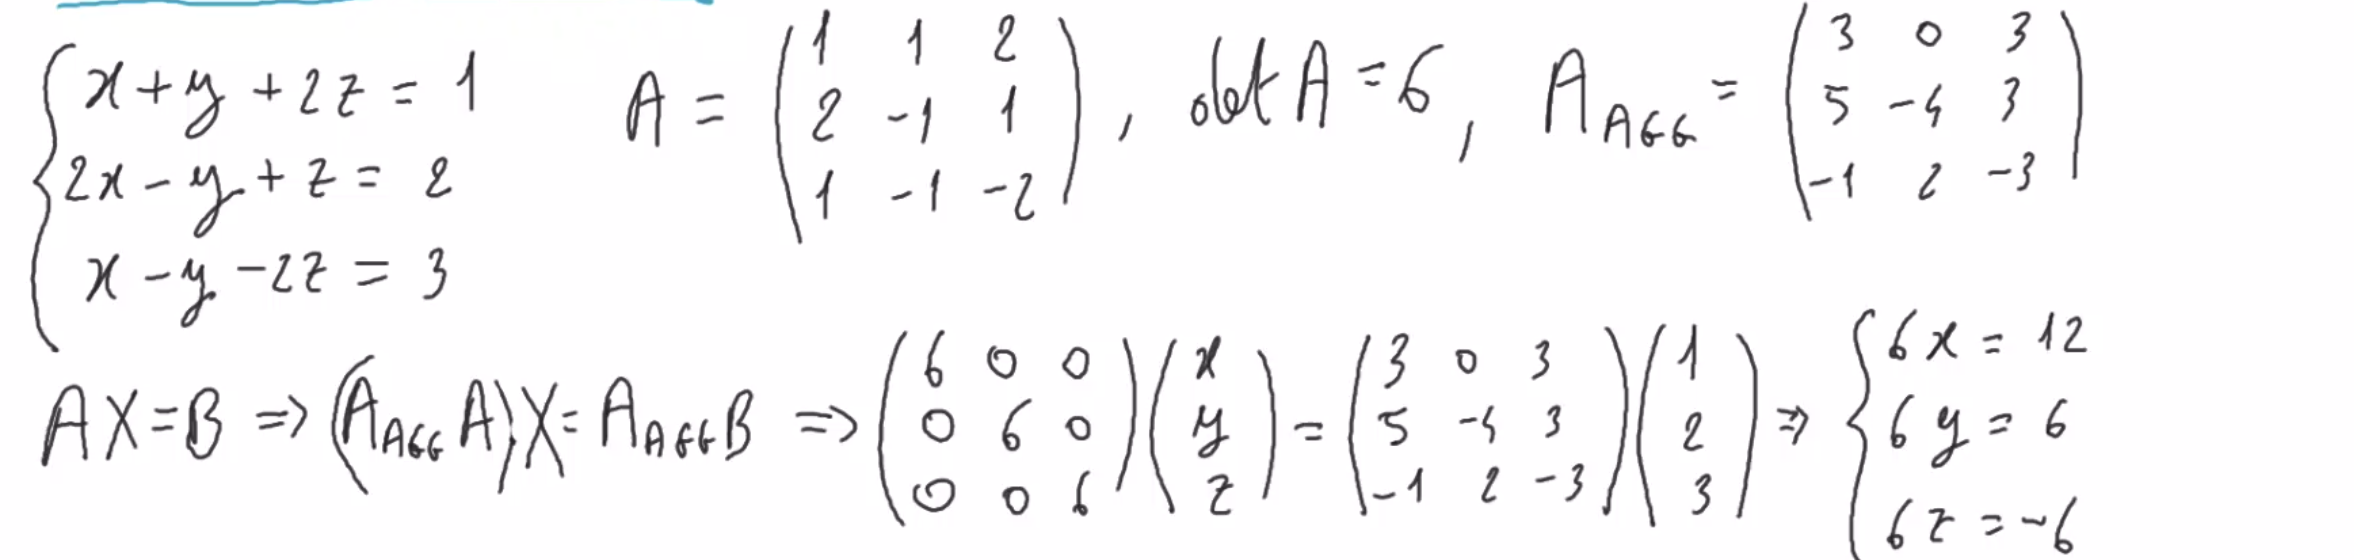 x + y + 2z = 1
2x - y + z = 2
x - y - 2z = 3
A = ( 1 1 2
2 -1 1
1 -1 -2 ) , det A = 6 , A_AGG = ( 3 0 3
5 -4 3
-1 2 -3 )
AX = B => (A_AGG A) X = A_AGG B => ( 6 0 0
0 6 0
0 0 6 ) ( x
y
z ) = ( 3 0 3
5 -4 3
-1 2 -3 ) ( 1
2
3 ) => { 6x = 12
6y = 6
6z = -6